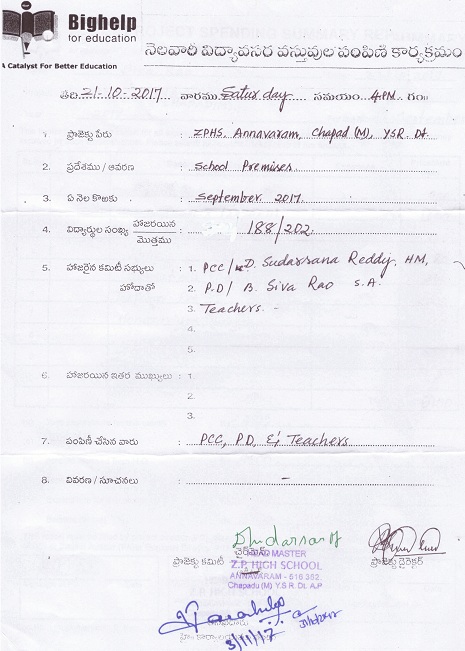 Bighelp
for education
A Catalyst For Better Education
నెలవారీ విద్యావసర వస్తువుల పంపిణి కార్యక్రమం
తేది 21-10-2017 వారము Saturday సమయం 4PM గం
1. ప్రాజెక్టు పేరు : ZPHS, Annavaram, Chapad (M), YSR Dt.
2. ప్రదేశము / ఆవరణ : School Premises
3. ఏ నెల కొఱకు : September 2017.
4. విద్యార్థుల సంఖ్య హాజరయిన / మొత్తము : 188/202
5. హాజరైన కమిటీ సభ్యులు : 1. PCC/ D. Sudarsana Reddy, HM,
హోదాతో 2. P.D/ B. Siva Rao S.A.
3. Teachers. -
4.
5.
6. హాజరయిన ఇతర ముఖ్యులు : 1
2.
3.
7. పంపిణీ చేసిన వారు : PCC, PD, & Teachers
8. వివరణ / సూచనలు : -
ప్రాజెక్టు కమిటీ ఛైర్మన్ ప్రాజెక్టు డైరెక్టర్
HEAD MASTER
Z.P. HIGH SCHOOL
ANNAVARAM - 516 352.
Chapadu (M) Y.S.R. Dt. A.P
3/11/17